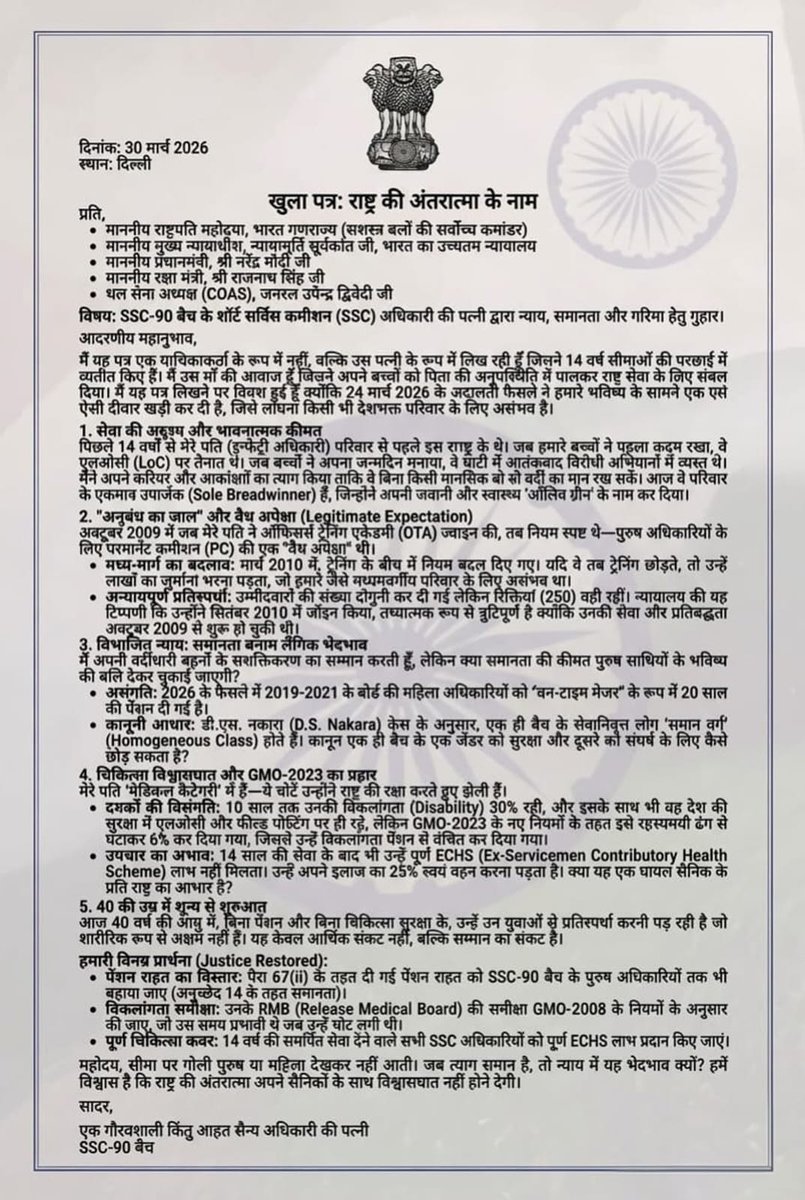 दिनांक: 30 मार्च 2026
स्थान: दिल्ली
खुला पत्र: राष्ट्र की अंतरात्मा के नाम
प्रति,
• माननीय राष्ट्रपति महोदया, भारत गणराज्य (सशस्त्र बलों की सर्वोच्च कमांडर)
• माननीय मुख्य न्यायाधीश, न्यायामूर्ति सूर्यकांत जी, भारत का उच्चतम न्यायालय
• माननीय प्रधानमंत्री, श्री नरेंद्र मोदी जी
• माननीय रक्षा मंत्री, श्री राजनाथ सिंह जी
• थल सेना अध्यक्ष (COAS), जनरल उपेन्द्र द्विवेदी जी
विषय: SSC-90 बैच के शॉर्ट सर्विस कमीशन (SSC) अधिकारी की पत्नी द्वारा न्याय, समानता और गरिमा हेतु गुहार।
आदरणीय महानुभाव,
मैं यह पत्र एक याचिकाकर्ता के रूप में नहीं, बल्कि उस पत्नी के रूप में लिख रही हूँ जिसने 14 वर्ष सीमाओं की परछाई में
व्यतीत किए हैं। मैं उस माँ की आवाज हूँ जिसने अपने बच्चों को पिता की अनुपस्थिति में पालकर राष्ट्र सेवा के लिए संबल
दिया। मैं यह पत्र लिखने पर विवश हुई हूँ क्योंकि 24 मार्च 2026 के अदालती फैसले ने हमारे भविष्य के सामने एक एसे
ऐसी दीवार खड़ी कर दी है, जिसे लांघना किसी भी देशभक्त परिवार के लिए असंभव है।
1. सेवा की अदृश्य और भावनात्मक कीमत
पिछले 14 वर्षों से मेरे पति (इन्फेंट्री अधिकारी) परिवार से पहले इस राष्ट्र के थे। जब हमारे बच्चों ने पहला कदम रखा, वे
एलओसी (LoC) पर तैनात थे। जब बच्चों ने अपना जन्मदिन मनाया, वे घाटी में आतंकवाद विरोधी अभियानों में व्यस्त थे।
मैंने अपने करियर और आकांक्षाओं का त्याग किया ताकि वे बिना किसी मानसिक बो सो वर्दी का मान रख सकें। आज वे परिवार
के एकमात्र उपार्जक (Sole Breadwinner) हैं, जिन्होंने अपनी जवानी और स्वास्थ्य 'ऑलिव ग्रीन' के नाम कर दिया।
2. "अनुबंध का जाल" और वैध अपेक्षा (Legitimate Expectation)
अक्टूबर 2009 में जब मेरे पति ने ऑफिसर्स ट्रेनिंग एकेडमी (OTA) ज्वाइन की, तब नियम स्पष्ट थे—पुरुष अधिकारियों के
लिए परमानेंट कमीशन (PC) की एक "वैध अपेक्षा" थी।
• मध्य-मार्ग का बदलाव: मार्च 2010 में, ट्रेनिंग के बीच में नियम बदल दिए गए। यदि वे तब ट्रेनिंग छोड़ते, तो उन्हें
लाखों का जुर्माना भरना पड़ता, जो हमारे जैसे मध्यमवर्गीय परिवार के लिए असंभव था।
• अन्यायपूर्ण प्रतिस्पर्धा: उम्मीदवारों की संख्या दोगुनी कर दी गई लेकिन रिक्तियां (250) वही रहीं। न्यायालय की यह
टिप्पणी कि उन्होंने सितंबर 2010 में जॉइन किया, तथ्यात्मक रूप से त्रुटिपूर्ण है क्योंकि उनकी सेवा और प्रतिबद्धता
अक्टूबर 2009 से शुरू हो चुकी थी।
3. विभाजित न्याय: समानता बनाम लैंगिक भेदभाव
मैं अपनी वर्दीधारी बहनों के सशक्तिकरण का सम्मान करती हूँ, लेकिन क्या समानता की कीमत पुरुष साथियों के भविष्य
की बलि देकर चुकाई जाएगी?
• असंगति: 2026 के फैसले में 2019-2021 के बोर्ड की महिला अधिकारियों को "वन-टाइम मेजर" के रूप में 20 साल
की पेंशन दी गई है।
• कानूनी आधार: डी.एस. नकारा (D.S. Nakara) केस के अनुसार, एक ही बैच के सेवानिवृत्त लोग 'समान वर्ग'
(Homogeneous Class) होते हैं। कानून एक ही बैच के एक जेंडर को सुरक्षा और दूसरे को संघर्ष के लिए कैसे
छोड़ सकता है?
4. चिकित्सा विश्वासघात और GMO-2023 का प्रहार
मेरे पति 'मेडिकल कैटेगरी' में हैं—ये चोटें उन्होंने राष्ट्र की रक्षा करते हुए झेली हैं।
• दशकों की विसंगति: 10 साल तक उनकी विकलांगता (Disability) 30% रही, और इसके साथ भी वह देश की
सुरक्षा में एलओसी और फील्ड पोस्टिंग पर ही रहे, लेकिन GMO-2023 के नए नियमों के तहत इसे रहस्यमयी ढंग से
घटाकर 6% कर दिया गया, जिसले उन्हें विकलांगता पेंशन से वंचित कर दिया गया।
• उपचार का अभाव: 14 साल की सेवा के बाद भी उन्हें पूर्ण ECHS (Ex-Servicemen Contributory Health
Scheme) लाभ नहीं मिलता। उन्हें अपने इलाज का 25% स्वयं वहन करना पड़ता है। क्या यह एक घायल सैनिक के
प्रति राष्ट्र का आभार है?
5. 40 की उम्र में शून्य से शुरुआत
आज 40 वर्ष की आयु में, बिना पेंशन और बिना चिकित्सा सुरक्षा के, उन्हें उन युवाओं से प्रतिस्पर्धा करनी पड़ रही है जो
शारीरिक रूप से अक्षम नहीं हैं। यह केवल आर्थिक संकट नहीं, बल्कि सम्मान का संकट है।
हमारी विनम्र प्रार्थना (Justice Restored):
• पेंशन राहत का विस्तार: पैरा 67(ii) के तहत दी गई पेंशन राहत को SSC-90 बैच के पुरुष अधिकारियों तक भी
बहाया जाए (अनुच्छेद 14 के तहत समानता)।
• विकलांगता समीक्षा: उनके RMB (Release Medical Board) की समीक्षा GMO-2008 के नियमों के अनुसार
की जाए, जो उस समय प्रभावी थे जब उन्हें चोट लगी थी।
• पूर्ण चिकित्सा कवर: 14 वर्ष की समर्पित सेवा देने वाले सभी SSC अधिकारियों को पूर्ण ECHS लाभ प्रदान किए जाएं।
महोदय, सीमा पर गोली पुरुष या महिला देखकर नहीं आती। जब त्याग समान है, तो न्याय में यह भेदभाव क्यों? हमें
विश्वास है कि राष्ट्र की अंतरात्मा अपने सैनिकों के साथ विश्वासघात नहीं होने देगी।
सादर,
एक गौरवशाली किंतु आहत सैन्य अधिकारी की पत्नी
SSC-90 बैच